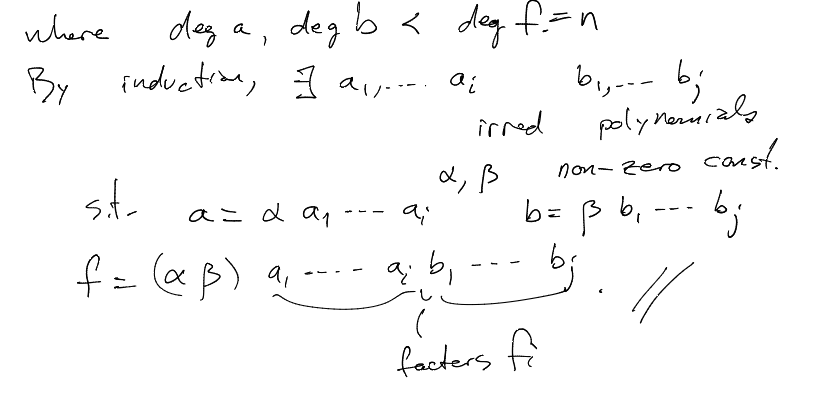 where deg a, deg b < deg f. = n
By induction, ∃ a₁,.... aᵢ b₁,--- bⱼ
irred polynomials
α, β non-zero const.
s.t. a = α a₁ --- aᵢ b = β b₁ --- bⱼ
f = (α β) a₁ ---- aᵢ b₁ --- bⱼ . //
factors fᵢ